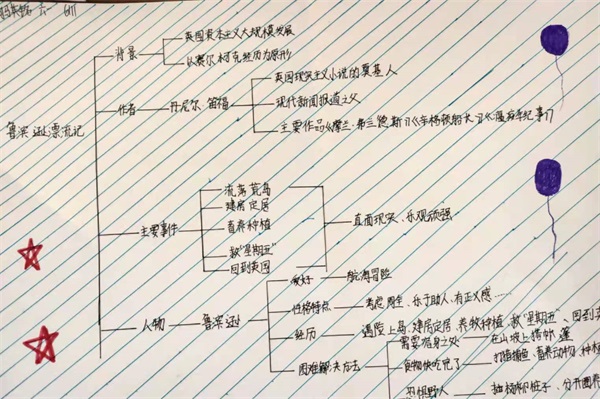 六一 6/1
鲁滨逊漂流记
背景
英国资本主义大规模发展
以赛尔柯克经历为原形
作者
丹尼尔.笛福
英国现实主义小说的奠基人
现代新闻报道之父
主要作品《摩兰·弗兰德斯》《辛格顿船长》《瘟疫年纪事》
主要事件
流落荒岛
建房定居
畜养种植
救"星期五"
回到英国
直面现实、乐观顽强
人物
鲁滨逊
爱好
航海冒险
性格特点
考虑周全、乐于助人、有正义感……
经历
遇险上岛、建房定居、养牧种植、救"星期五"、回到英
困难解决方法
需要栖身之处
在山坡上搭帐篷
食物快吃完了
打猎捕鱼、畜养动物、种植
恐惧野人